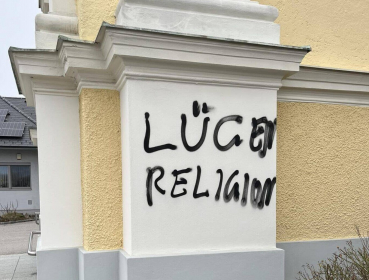 LÜGEN
RELIGION